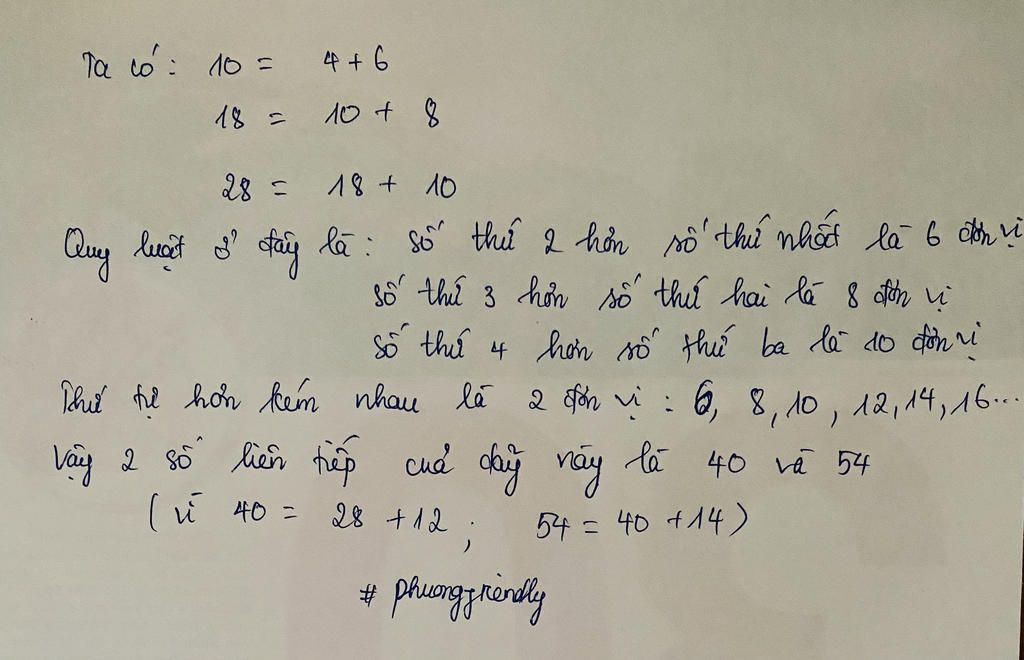 Ta có: 10 = 4 + 6
18 = 10 + 8
28 = 18 + 10
Quy luật ở đây là: số thứ 2 hơn số thứ nhất là 6 đơn vị
số thứ 3 hơn số thứ hai là 8 đơn vị
số thứ 4 hơn số thứ ba là 10 đơn vị
Thứ tự hơn kém nhau là 2 đơn vị: 6, 8, 10, 12, 14, 16...
Vậy 2 số liên tiếp của dãy này là 40 và 54
(vì 40 = 28 + 12; 54 = 40 + 14)
# phuongfriendly